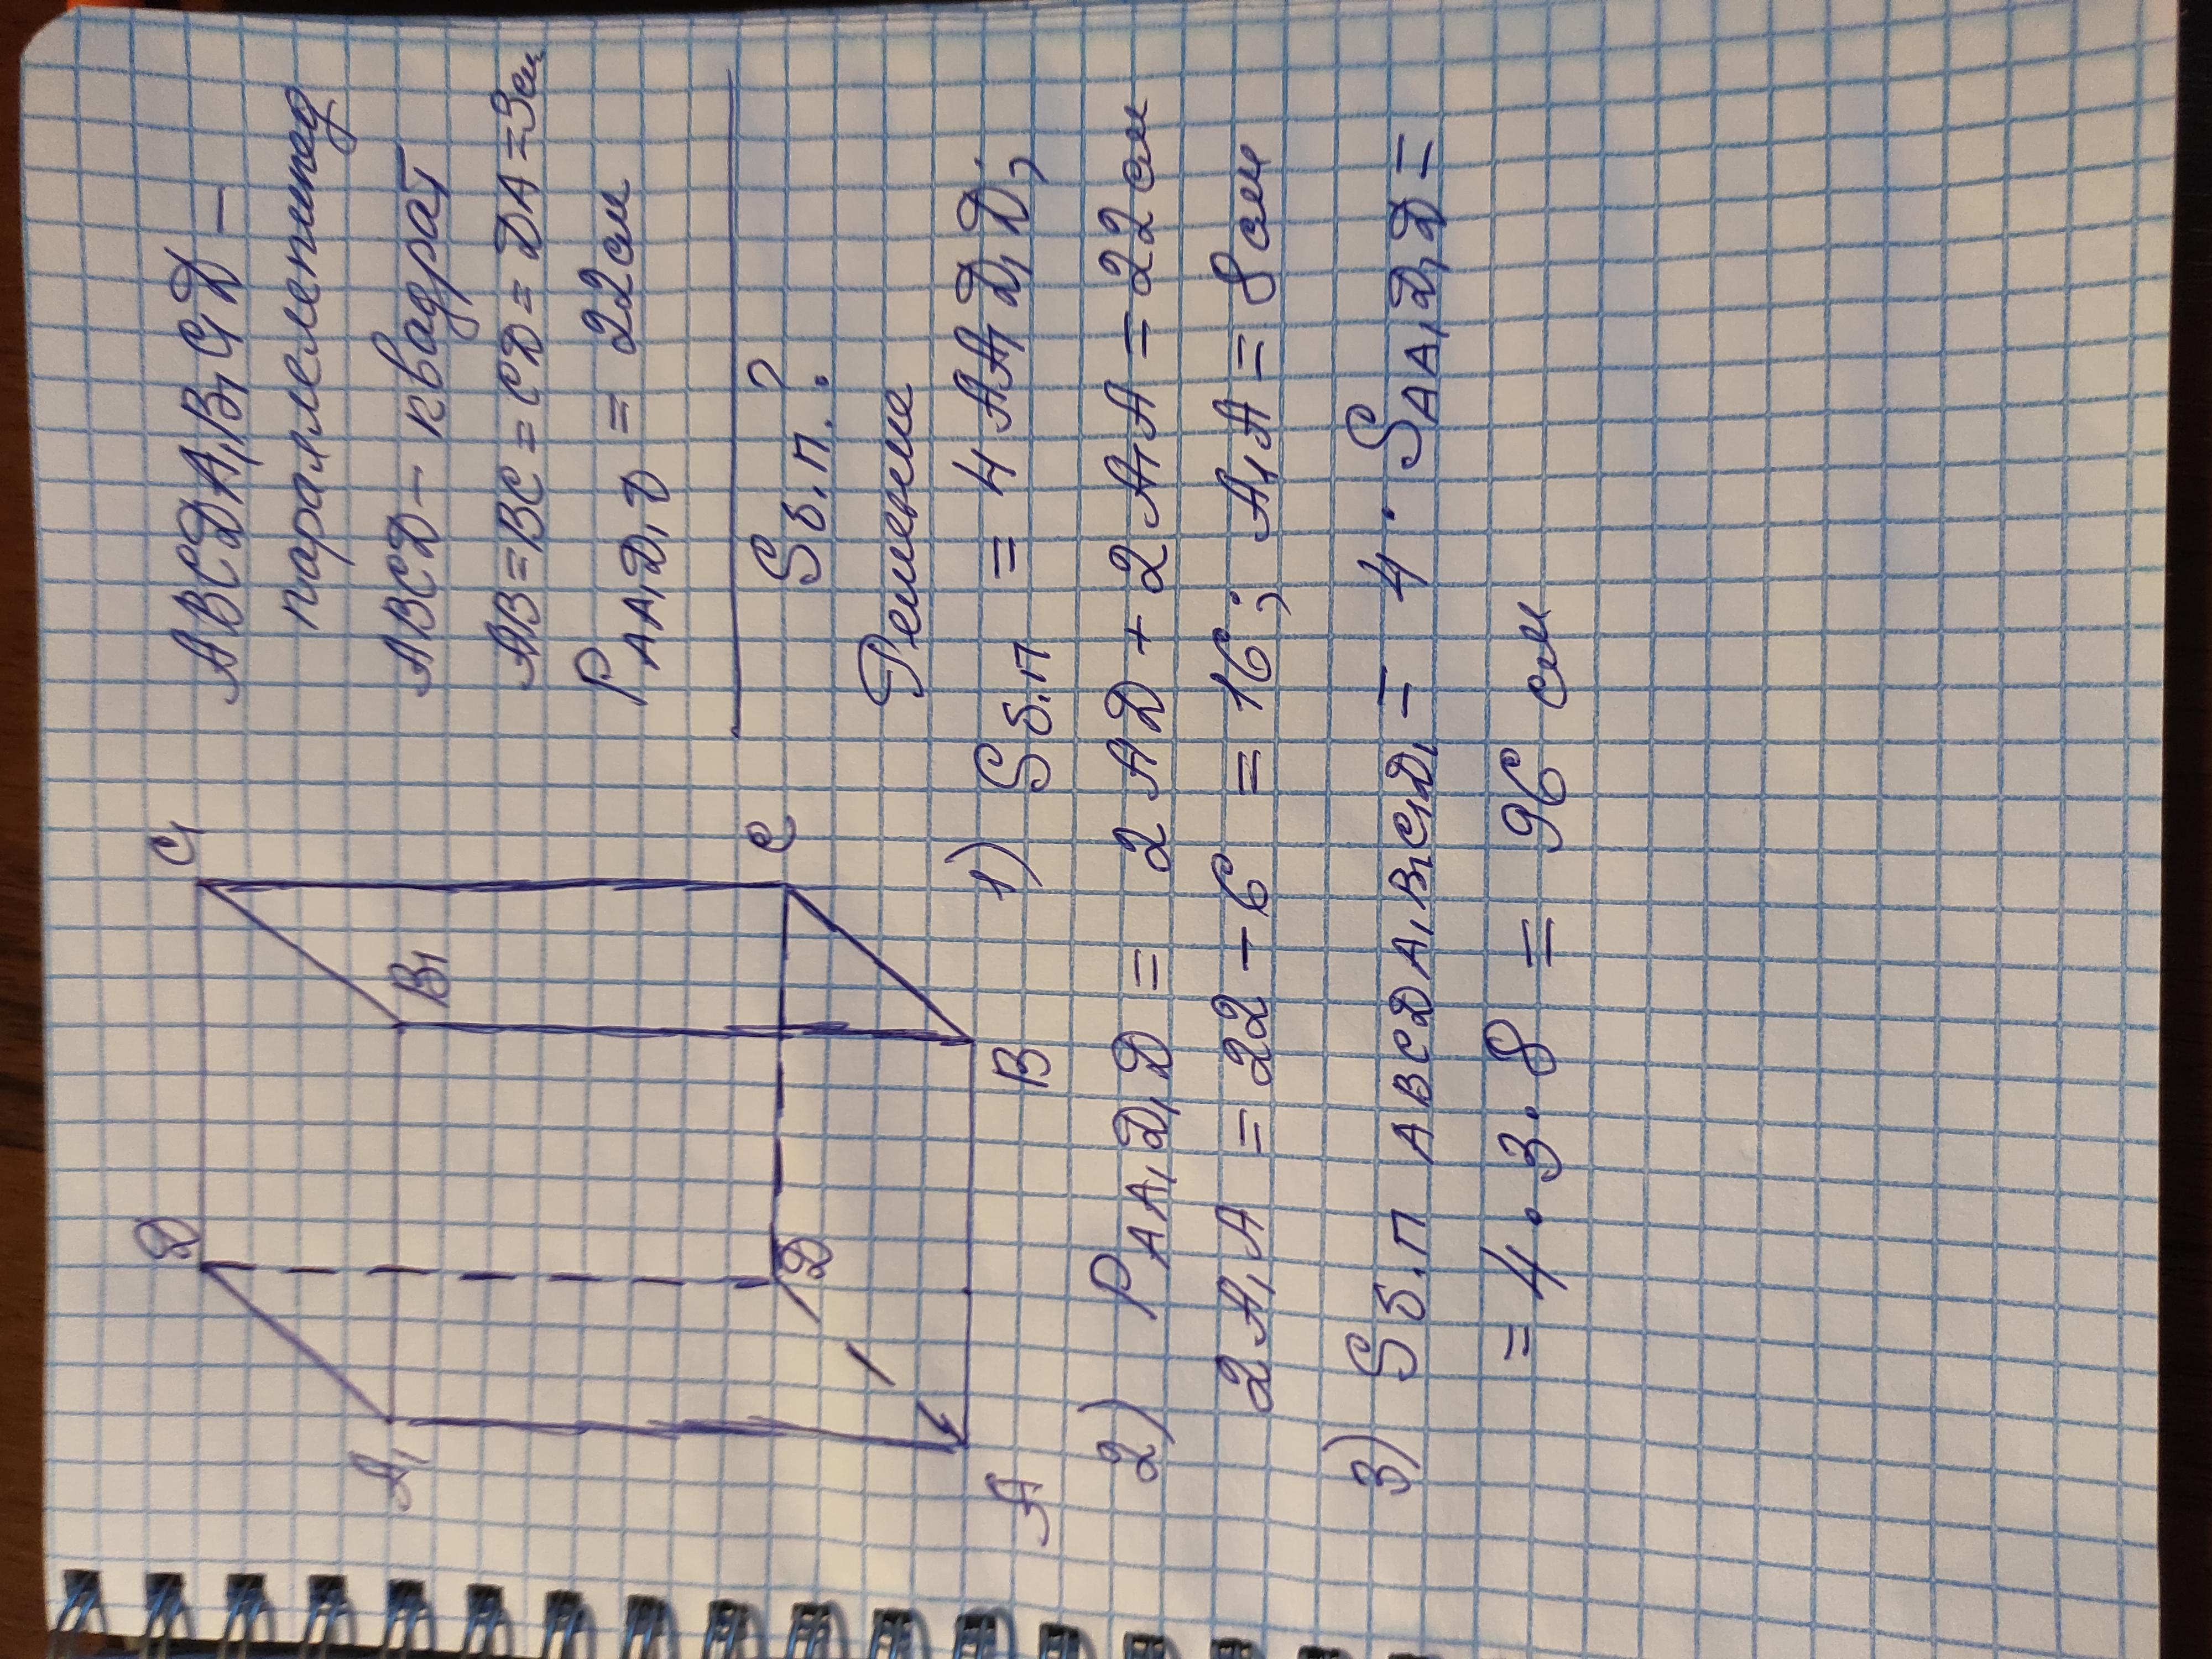 C₁
Д
B₁
A₁
C
Д
B
A
ABCДA₁B₁C₁Д –
параллелепипед
ABCД – квадрат
AB = BC = CД = ДA = 3см
P AA₁Д₁Д = 22см
Sб.п.?
Решение
1) Sб.п = 4 AA₁Д₁Д;
2) P AA₁Д₁Д = 2AД + 2A₁A = 22 см
2A₁A = 22 – 6 = 16; A₁A = 8см
3) Sб.п ABCДA₁B₁C₁Д₁ = 4 · S AA₁Д₁Д =
= 4 · 3 · 8 = 96 см